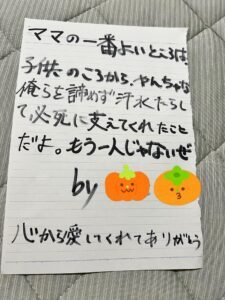 ママの一番よいところは、
子供のころから、やんちゃな
俺らを諦めず汗水たらし
て必死に支えてくれたこと
だよ。もう一人じゃないぜ
by
心から愛してくれてありがとう